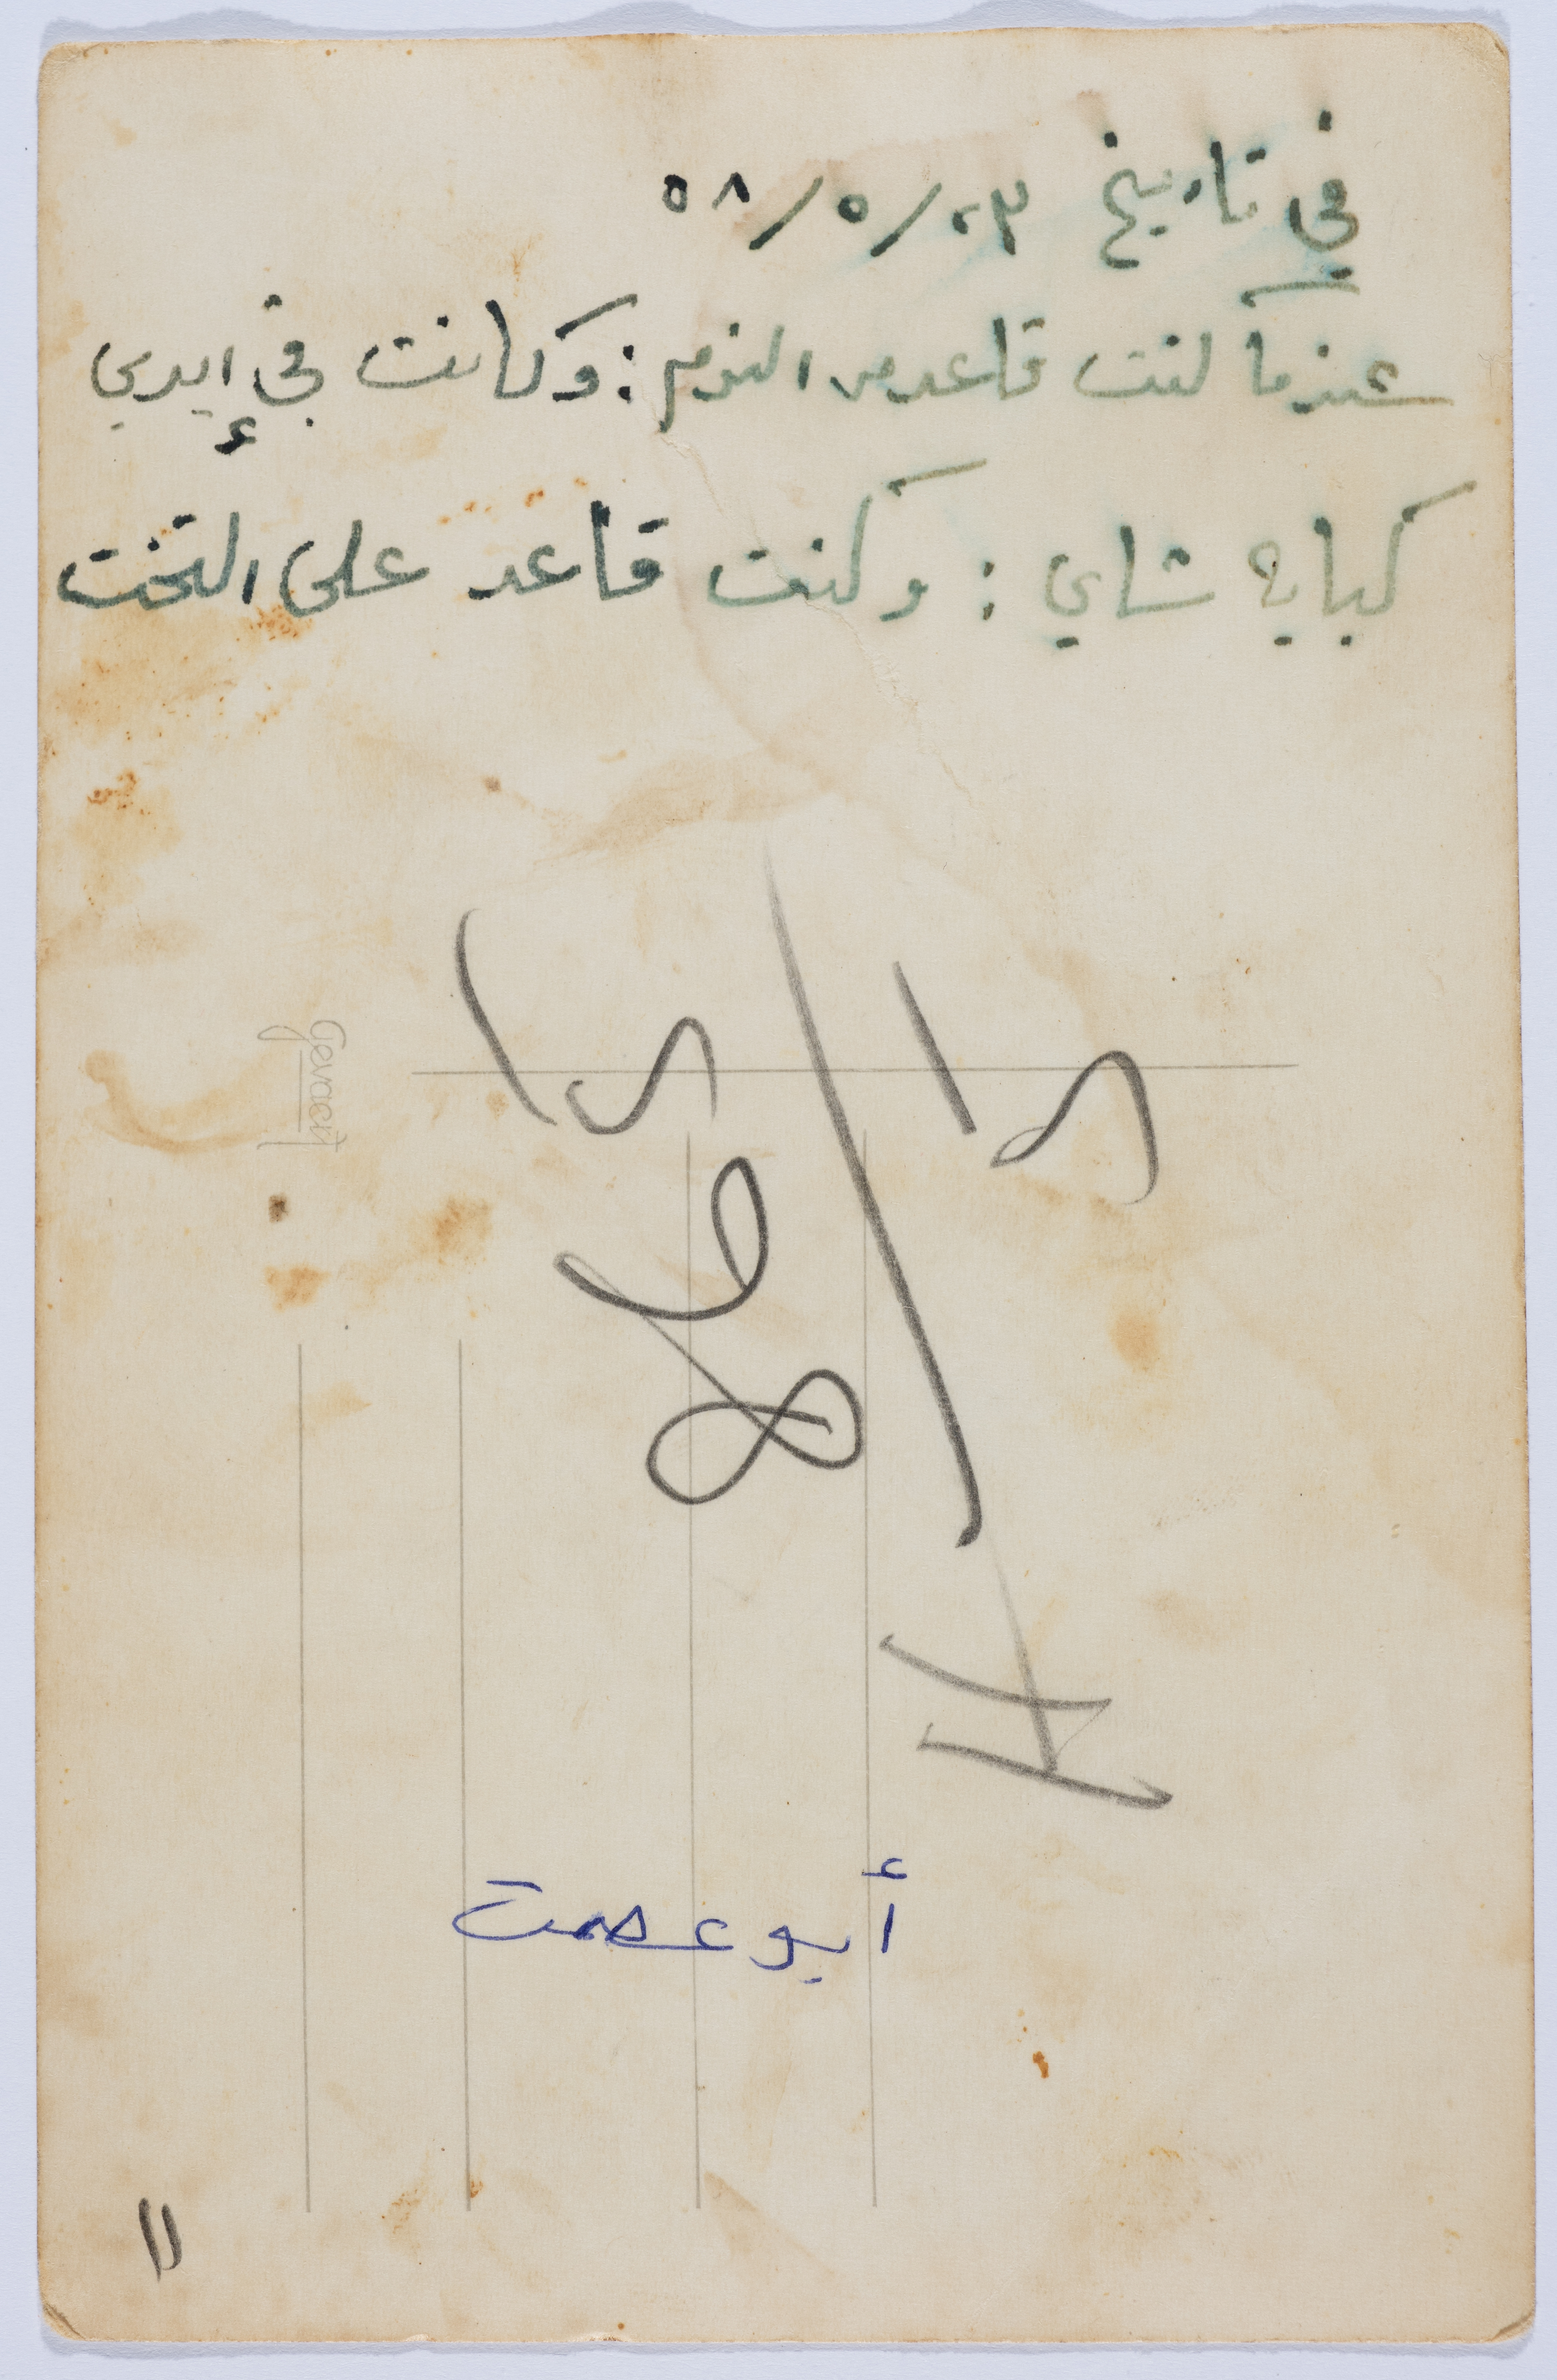 في تاريخ ٢٣/٥/٥٨
عندما كنت قاعد من النوم : وكانت في إيدي
كباية شاي : وكنت قاعد على التخت
Gevaert
أبو عصمت
11